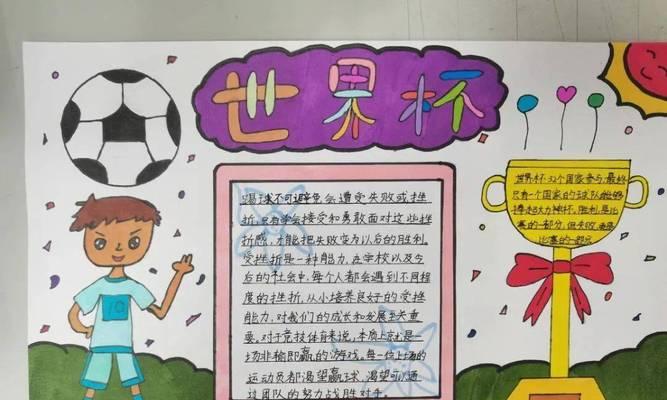 世界杯
踢球不可避免会遭受失败或挫
折,只有学会接受和勇敢面对这些挫
折感,才能把失败变为以后的胜利。
受挫折是一种能力,在学校以及今
后的社会中,每个人都会遇到不同程
度的挫折,从小培养良好的受挫
能力,对我们的成长和发展至关重
要。对于竞技体育来说,本质上就是一
场非输即赢的游戏。每一位上场的
运动员都渴望赢球,渴望可以通
过团队的努力战胜对手。
世界杯32个国家参与,最终
只有一个国家的球队能够
捧起大力神杯。胜利是比
赛的一部分,但失败
比赛的一部分
10